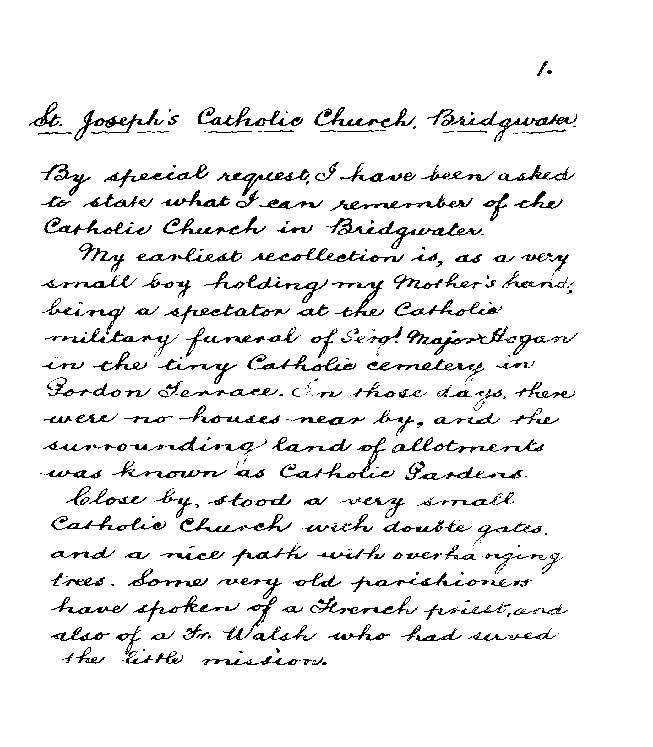 1.
St. Joseph's Catholic Church, Bridgwater.
By special request, I have been asked
to state what I can remember of the
Catholic Church in Bridgwater.
My earliest recollection is, as a very
small boy holding my Mother's hand,
being a spectator at the Catholic
military funeral of Sergt Major Hogan
in the tiny Catholic cemetery in
Gordon Terrace. In those days, there
were no houses near by, and the
surrounding land of allotments
was known as Catholic Gardens.
Close by, stood a very small
Catholic Church with double gates.
and a nice path with overhanging
trees. Some very old parishioners
have spoken of a French priest, and
also of a Fr. Walsh who had served
the little mission.